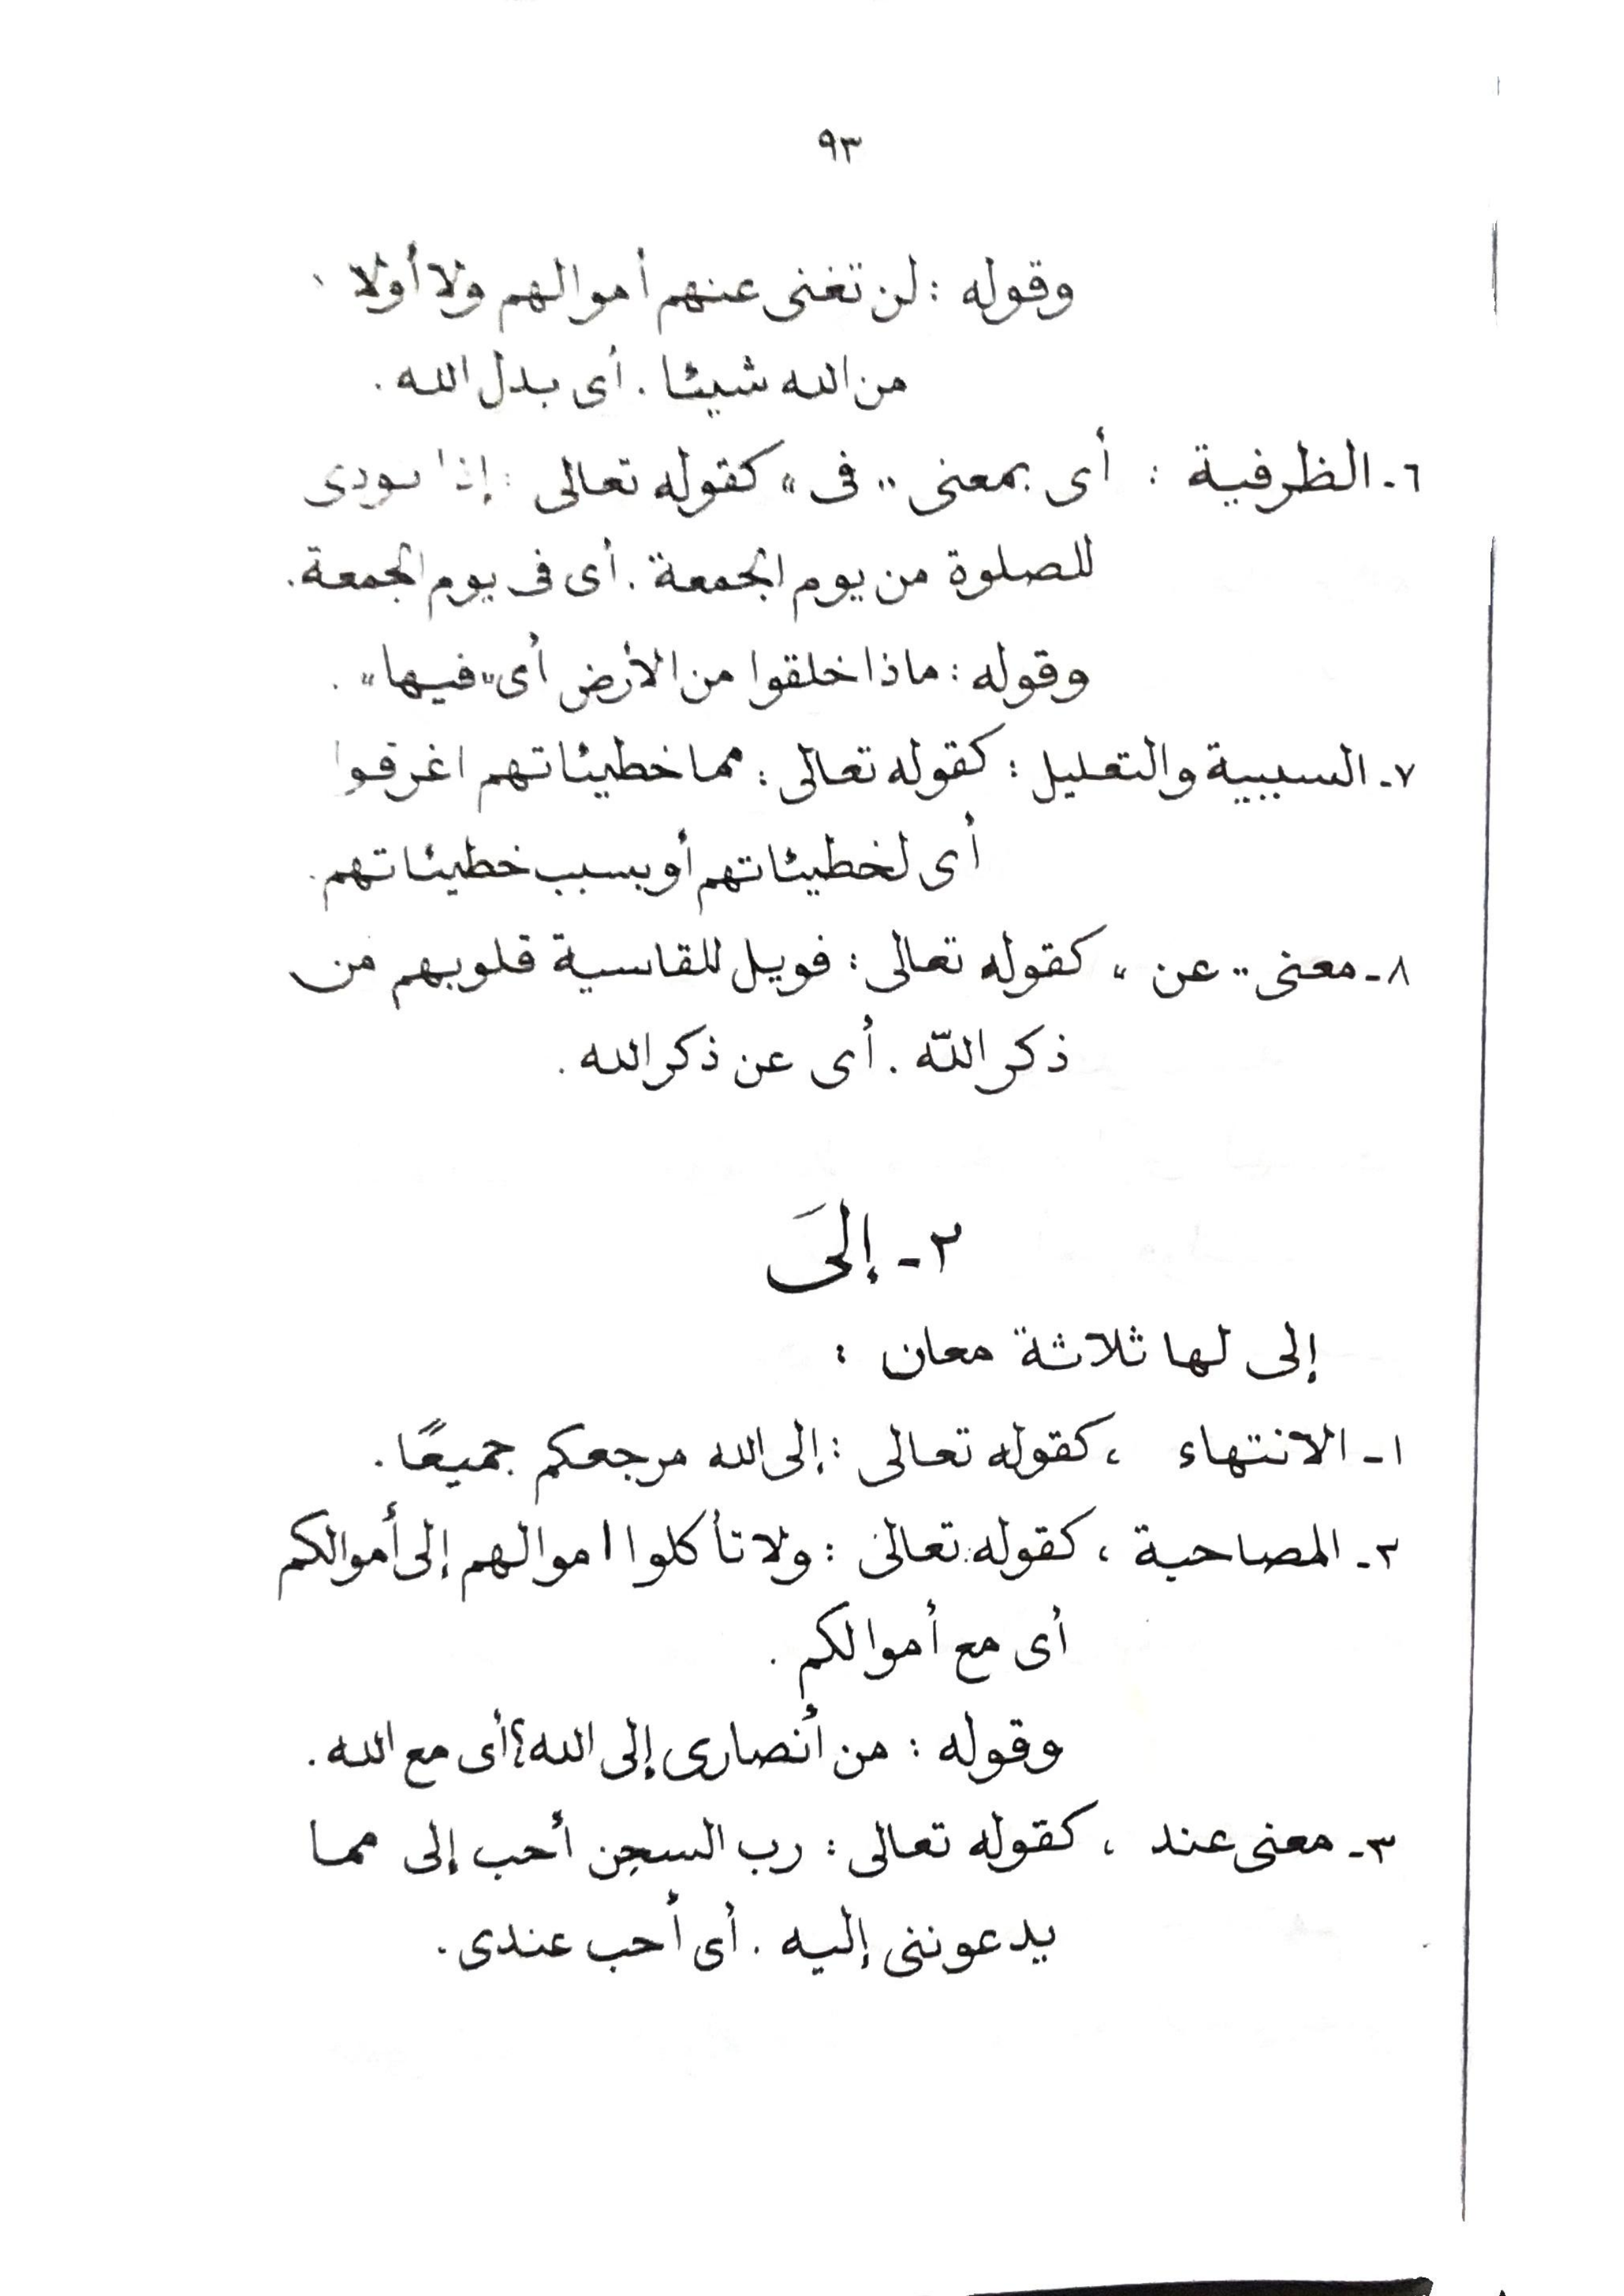 ٩٣
وقوله : لن تغنى عنهم أموالهم ولا أولا
من الله شيئا . أى بدل الله .
٦ـ الظرفية : أى بمعنى ,, فى ،، كقوله تعالى : إذا نودى
للصلوة من يوم الجمعة . أى فى يوم الجمعة .
وقوله : ماذا خلقوا من الأرض أى ,, فيها ،، .
٧ـ السببية والتعليل : كقوله تعالى : مما خطيئاتهم اغرقوا
أى لخطيئاتهم أو بسبب خطيئاتهم .
٨ـ معنى ,, عن ،، كقوله تعالى : فويل للقاسية قلوبهم من
ذكر اللّه . أى عن ذكر الله .
٢ـ إلىَ
إلى لها ثلاثة معان :
١ـ الانتهاء ، كقوله تعالى : إلى الله مرجعكم جميعًا .
٢ـ المصاحبة ، كقوله تعالى : ولا تأكلوا اموالهم إلى أموالكم
أى مع أموالكم .
وقوله : من أنصارى إلى الله؟ أى مع الله .
٣ـ معنى عند ، كقوله تعالى : رب السجن أحب إلى مما
يدعوننى إليه . أى أحب عندى .